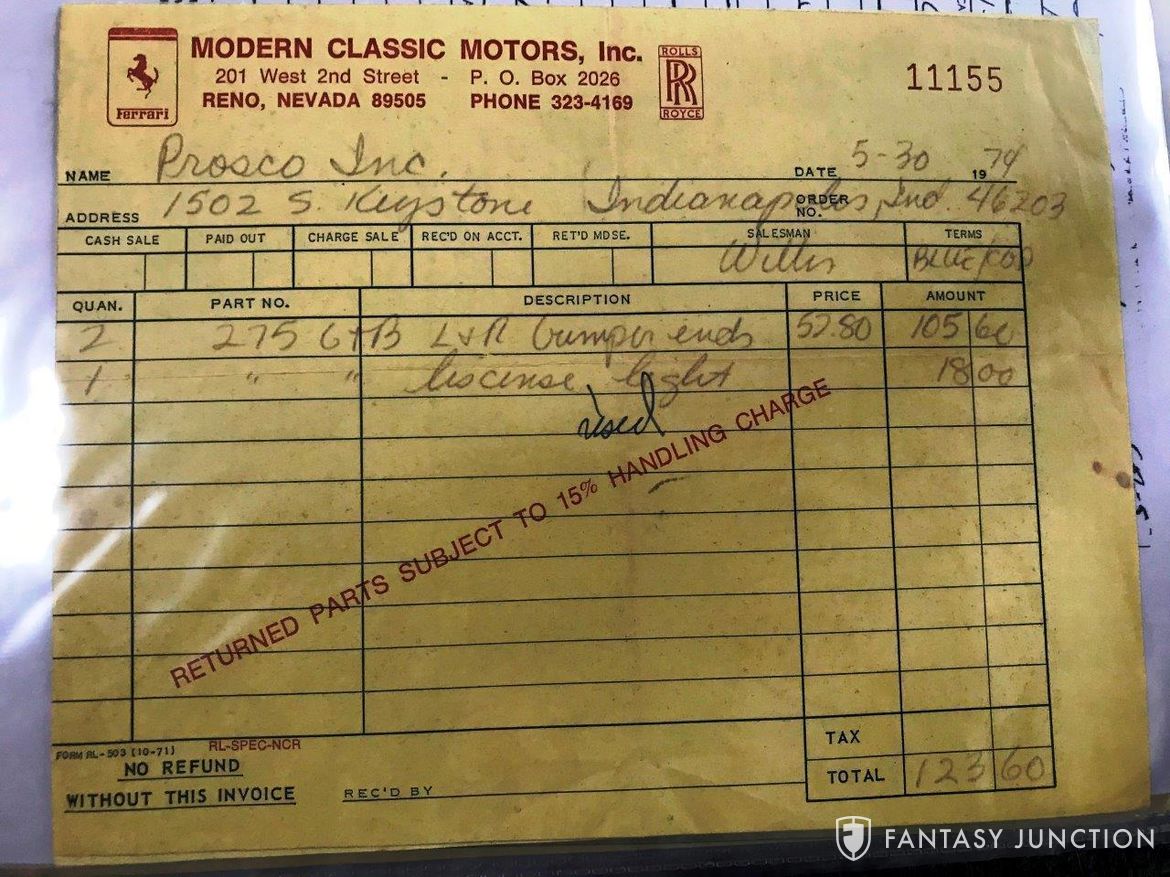 MODERN CLASSIC MOTORS, Inc.
201 West 2nd Street - P. O. Box 2026
RENO, NEVADA 89505 PHONE 323-4169
Ferrari
ROLLS
RR
ROYCE
11155
NAME Prosco Inc. DATE 5-30 1974
ADDRESS 1502 S. Keystone Indianapolis, Ind. 46203 ORDER NO.
CASH SALE PAID OUT CHARGE SALE REC'D ON ACCT. RET'D MDSE. SALESMAN TERMS
Willis
QUAN. PART NO. DESCRIPTION PRICE AMOUNT
2 275 GTB L+R bumper ends 52.80 105 60
1 " " liscense light 18 00
used
RETURNED PARTS SUBJECT TO 15% HANDLING CHARGE
TAX
TOTAL 123 60
FORM RL-503 (10-71) RL-SPEC-NCR
NO REFUND
WITHOUT THIS INVOICE REC'D BY
FANTASY JUNCTION